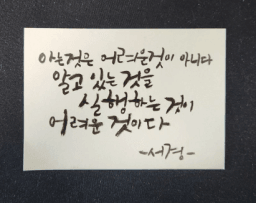 아는것은 어려운것이 아니다
알고 있는 것을
실행하는 것이
어려운 것이다
-서경-